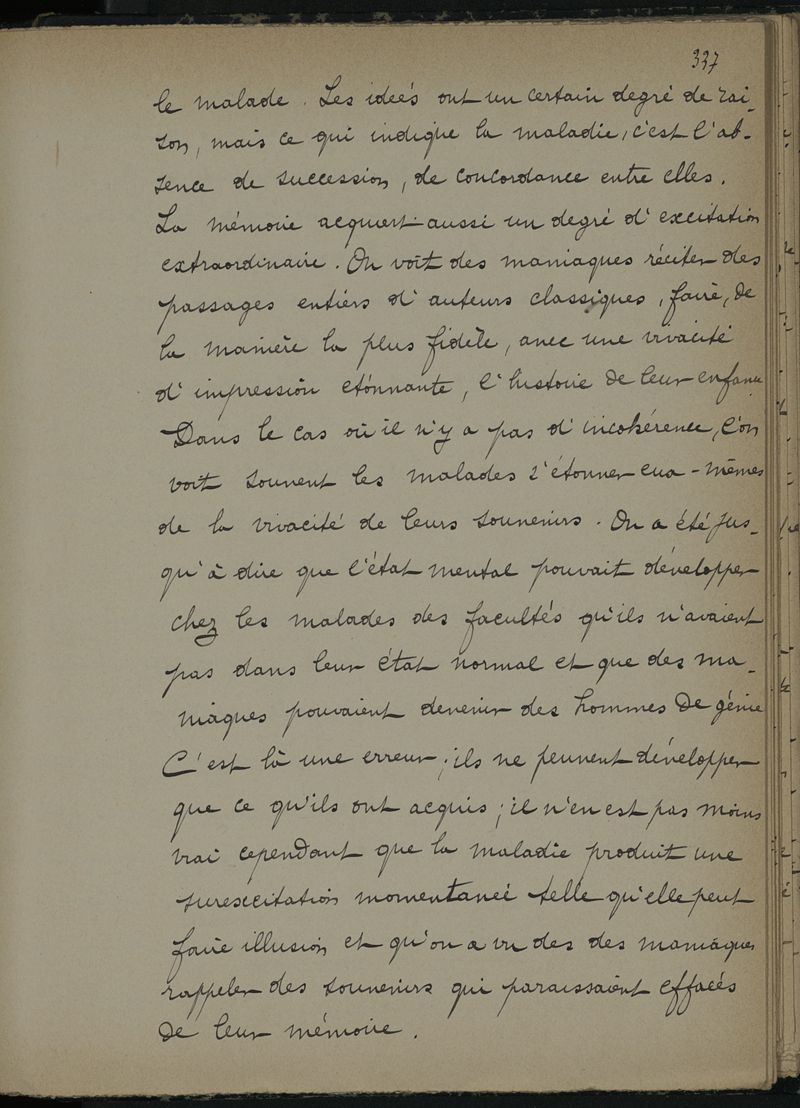 337
le malade. Les idées ont un certain degré de rai-
son, mais ce qui indique la maladie, c'est l'ab-
sence de succession, de concordance entre elles.
La mémoire acquiert aussi un degré d'excitation
extraordinaire. On voit des maniaques réciter des
passages entiers d'auteurs classiques, faire, de
la manière la plus fidèle, avec une vivacité
d'impression étonnante, l'histoire de leur enfance
Dans le cas où il n'y a pas d'incohérence, l'on
voit souvent les malades s'étonner eux-mêmes
de la vivacité de leurs souvenirs. On a été jus-
qu'à dire que l'état mental pouvait développer
chez les malades des facultés qu'ils n'avaient
pas dans leur état normal et que des ma-
niaques pouvaient devenir des hommes de génie
C'est là une erreur; ils ne peuvent développer
que ce qu'ils ont acquis; il n'en est pas moins
vrai cependant que la maladie produit une
surexcitation momentanée telle qu'elle peut
faire illusion et qu'on a vu des des maniaques
rappeler des souvenirs qui paraissaient effacés
de leur mémoire.